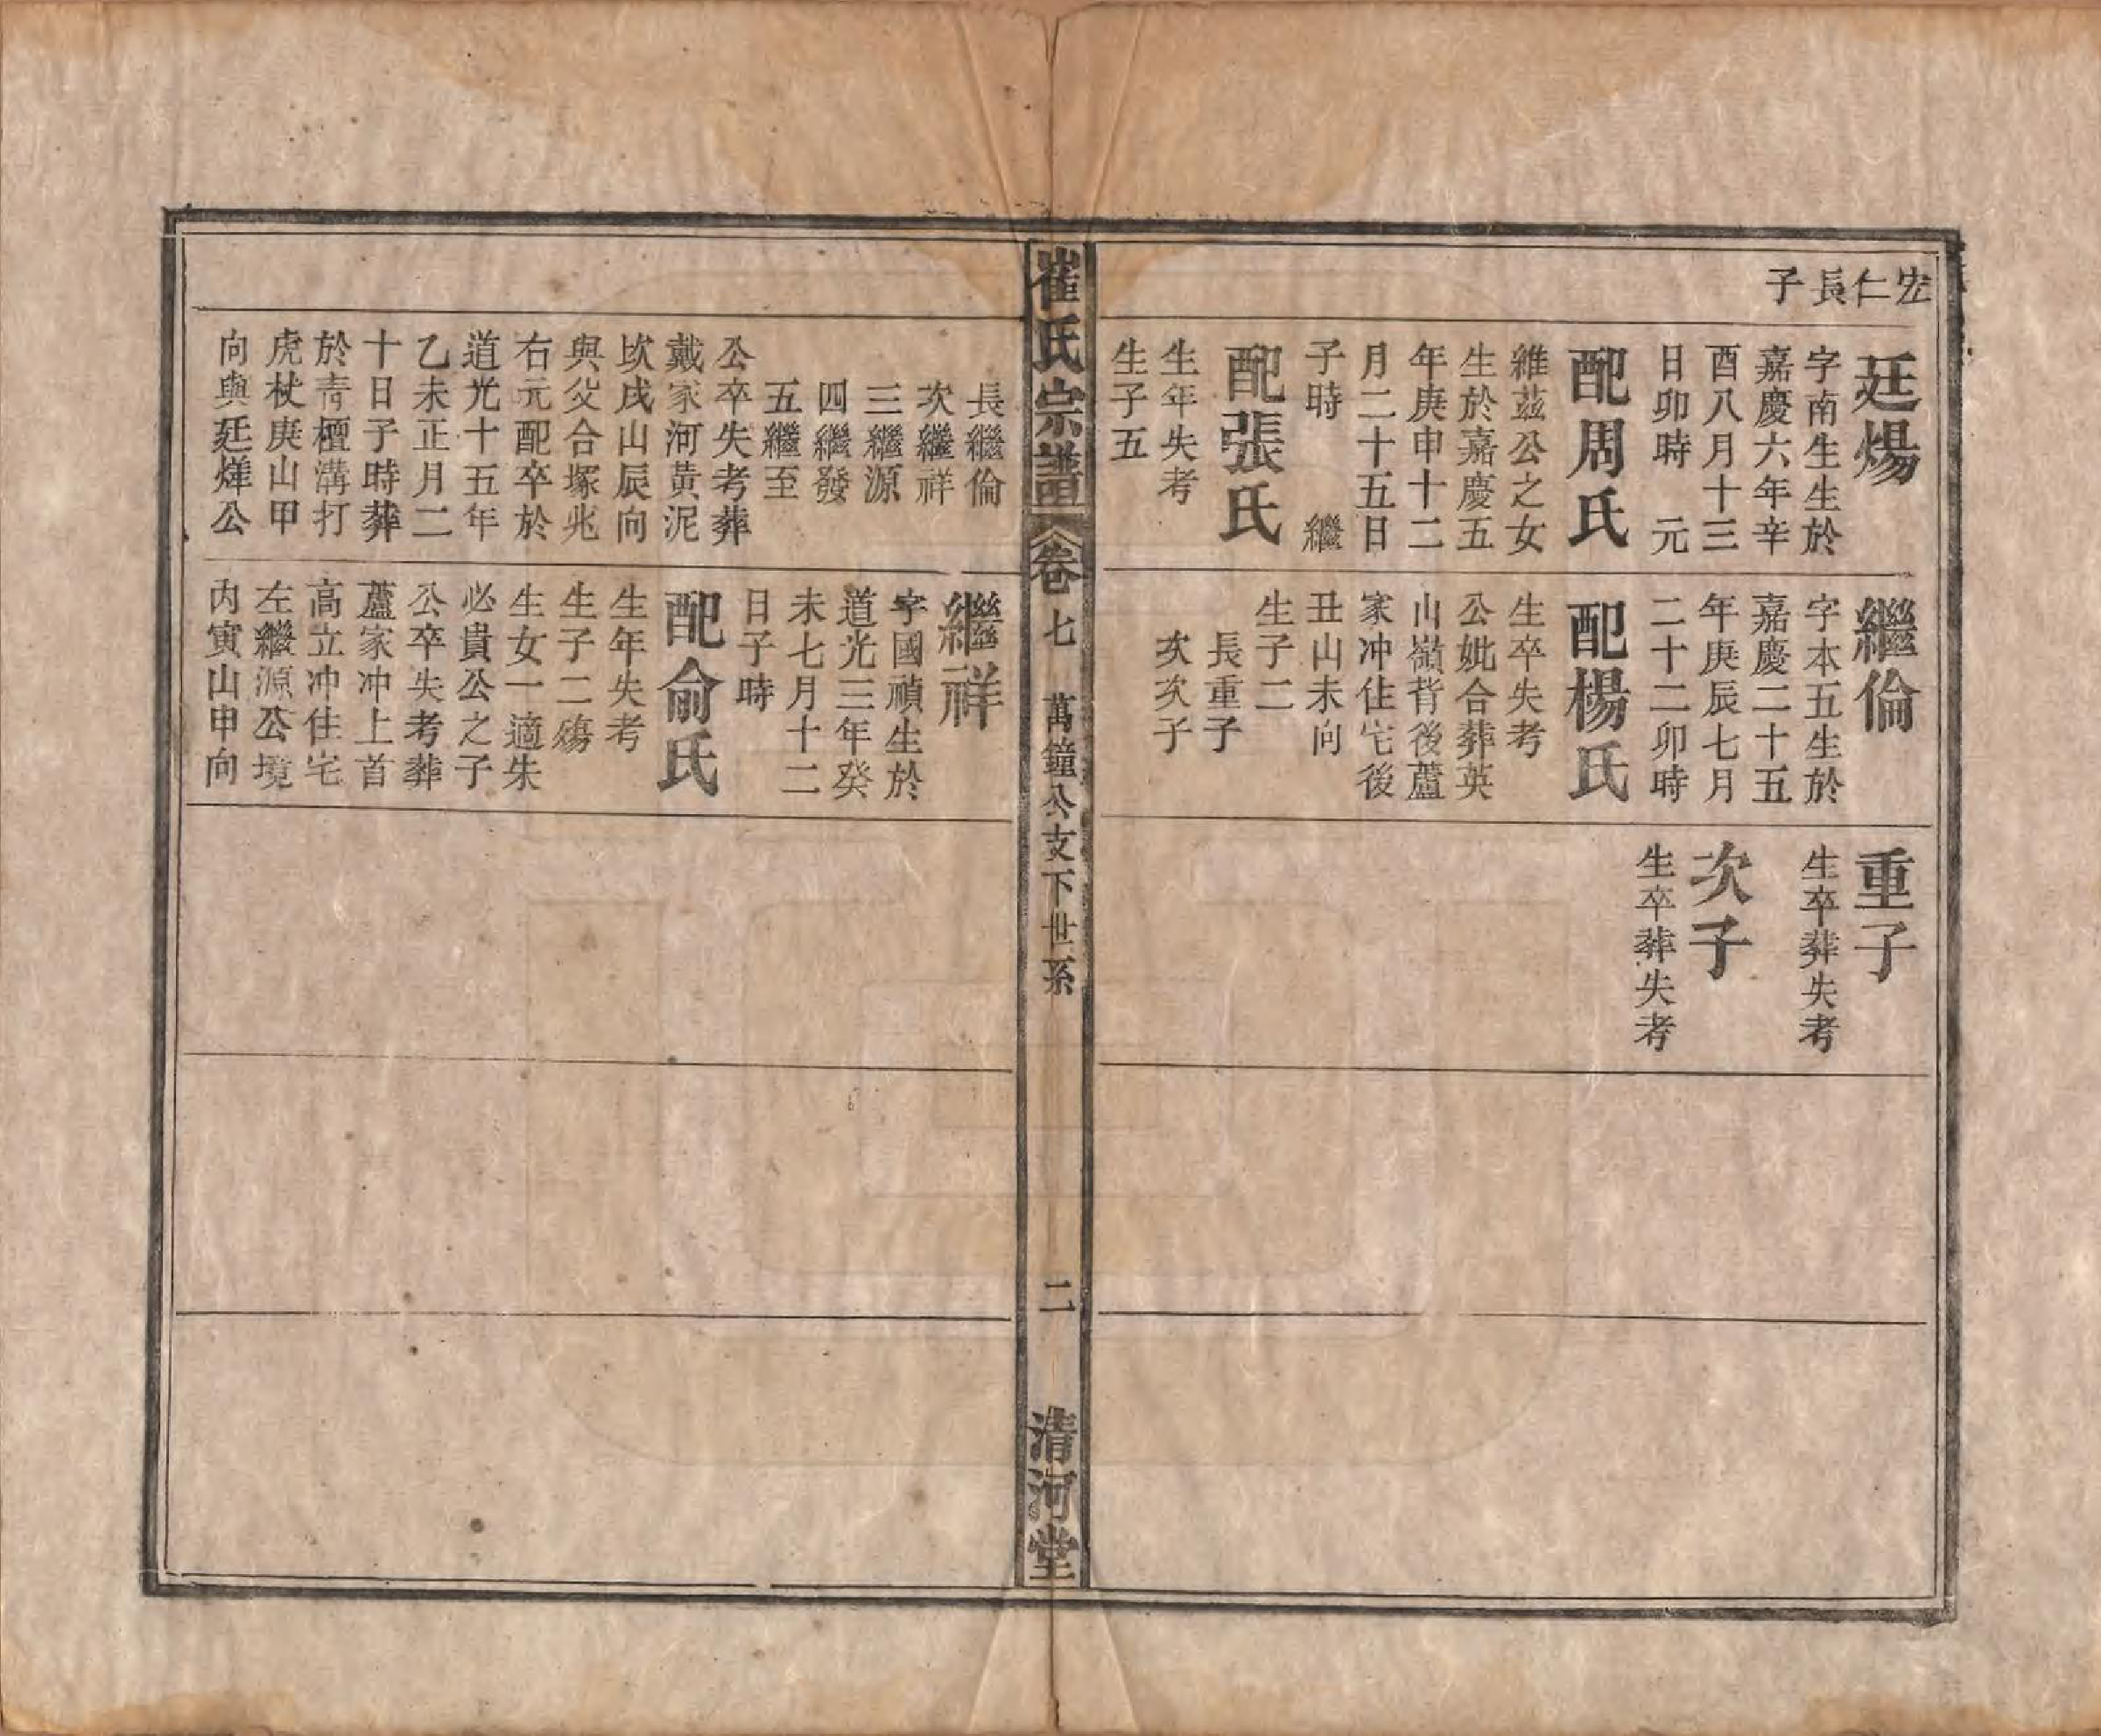 宏仁長子
廷煬
字南生生於
嘉慶六年辛
酉八月十三
日卯時　元
配周氏
維茲公之女
生於嘉慶五
年庚申十二
月二十五日
子時　　繼
配張氏
生年失考
生子五
繼倫
字本五生於
嘉慶二十五
年庚辰七月
二十二卯時
配楊氏
生卒失考
公妣合葬英
山嶺背後蘆
家冲住宅後
丑山未向
生子二
長重子
次次子
重子
生卒葬失考
次子
生卒葬失考
崔氏宗譜
卷七　萬鐘公支下世系
二
清河堂
長繼倫
次繼祥
三繼源
四繼發
五繼至
公卒失考葬
戴家河黃泥
坎戌山辰向
與父合塚兆
右元配卒於
道光十五年
乙未正月二
十日子時葬
於青檀溝打
虎杖庚山甲
向與廷烊公
繼祥
字國禎生於
道光三年癸
未七月十二
日子時
配俞氏
生年失考
生子二殤
生女一適朱
必貴公之子
公卒失考葬
蘆家冲上首
高立冲住宅
左繼源公境
內寅山申向